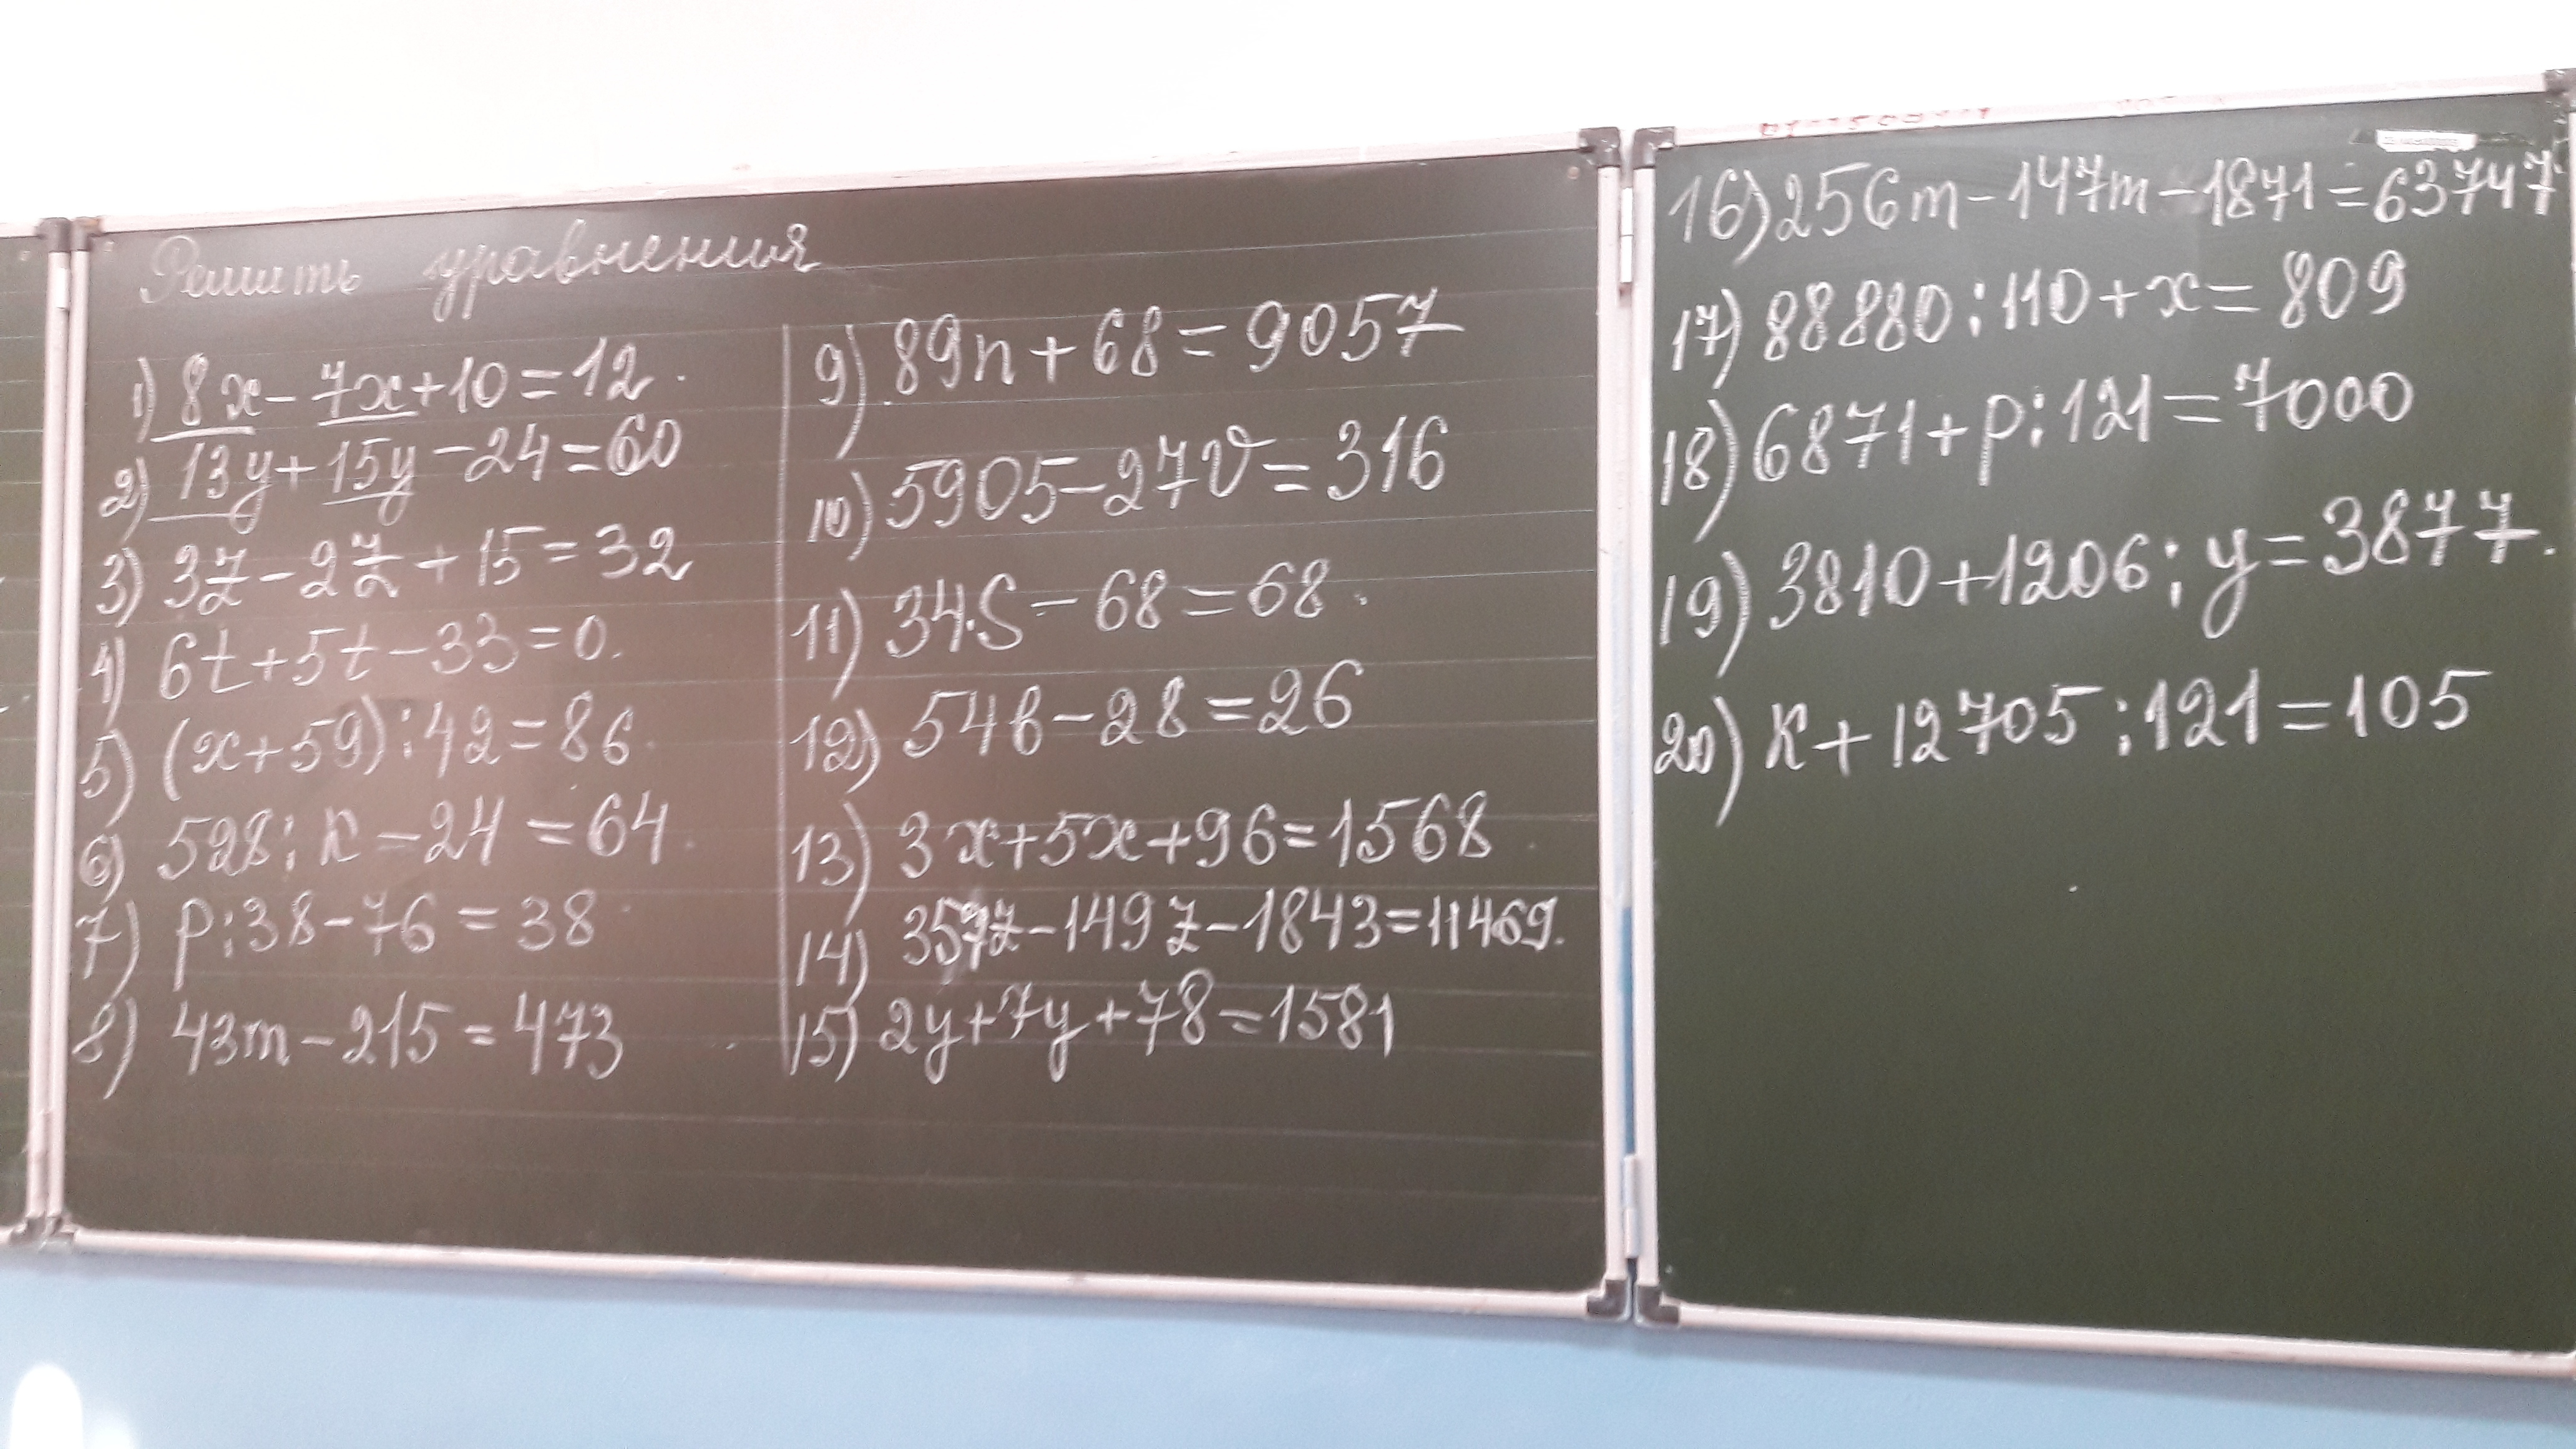 Решить уравнения
1) 8x-7x+10=12.
2) 13y+15y-24=60
3) 3z-2z+15=32
4) 6t+5t-33=0.
5) (x+59):42=86.
6) 528:к-24=64.
7) p:38-76=38
8) 43m-215=473
9) 89n+68=9057
10) 5905-27v=316
11) 34.S-68=68.
12) 54в-28=26
13) 3x+5x+96=1568
14) 3597z-149z-1843=11469.
15) 2y+7y+78=1581
16) 256m-147m-1871=63747
17) 88880:110+x=809
18) 6871+p:121=7000
19) 3810+1206:y=3877.
20) к+12705:121=105